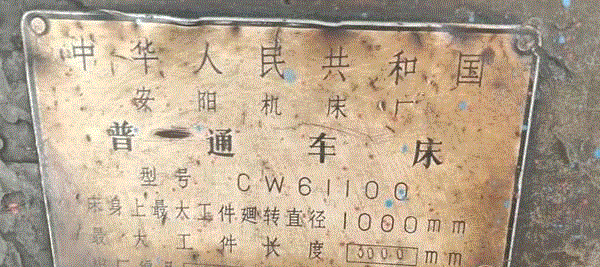 中华人民共和国
安阳机床厂
普通车床
型号 CW61100
床身上最大工件廻转直径 1000mm
最大工件长度 3000 mm